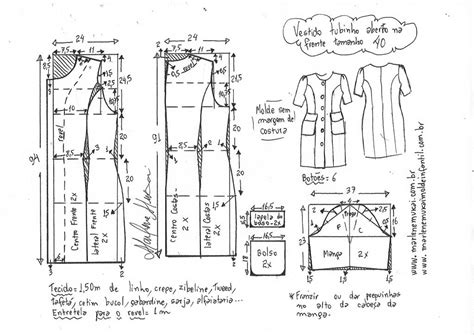 Vestido tubinho aberto na
frente tamanho 40
Molde sem
margem de
costura
Botões: 6
www.marlenemukai.com.br
24,5
7,5
11
8,5
10
20
8,5
3
20
94
revel
Centro Frente 2x
lateral Frente 2x
24,5
7,5
11
20
8,5
20
Centro Costas
2x
lateral Costas
2x
16,5
Tapela do
bolso 2x
16,5
Bolso
2x
37
F
C
Manga
2x
1,5
1,5
Tecido: 1,50m de linho, crepe, zibeline, tweed,
tafetá, cetim bucol, gabardine, sarja, alfaiataria...
Entretela para o revel: 1m
* Franzir ou dar preguinhas
no alto da cabeça da
manga.